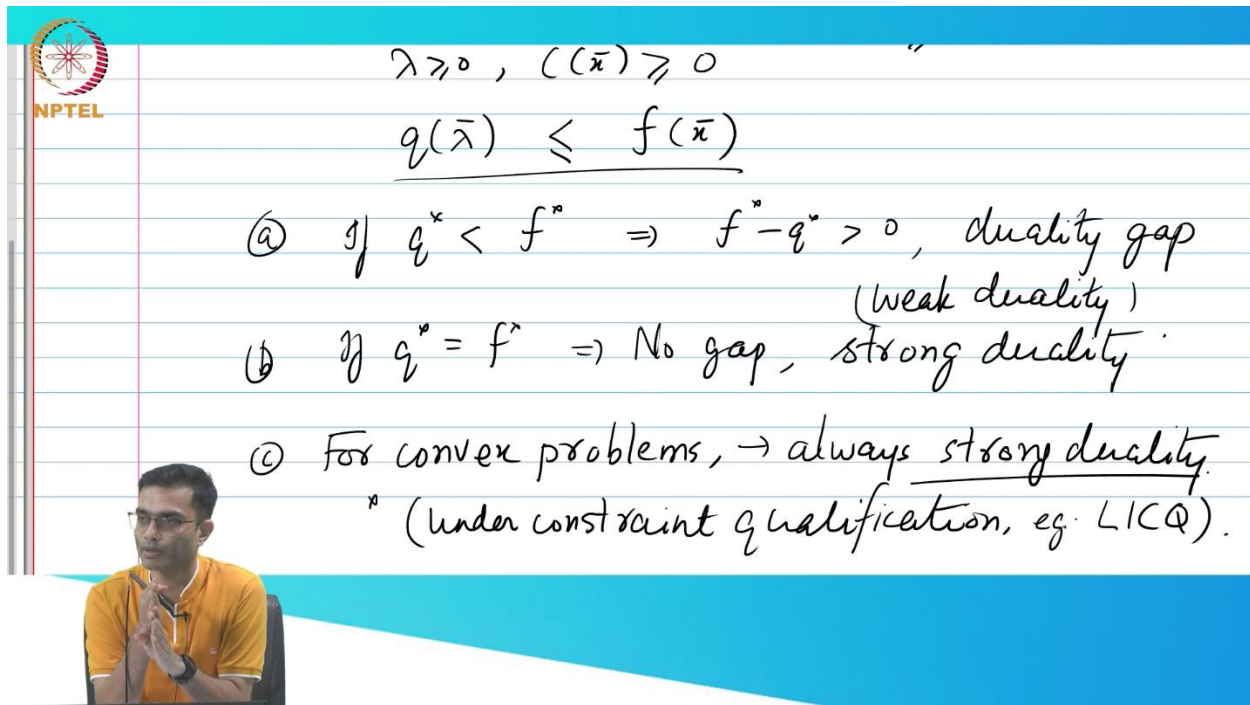 λ ⩾ 0 , C(x̄) ⩾ 0
NPTEL
q(λ̄) ≤ f(x̄)
ⓐ If q* < f* ⇒ f* - q* > 0, duality gap
(weak duality)
ⓑ If q* = f* ⇒ No gap, strong duality
ⓒ For convex problems, → always strong duality.
* (under constraint qualification, eg. LICQ).